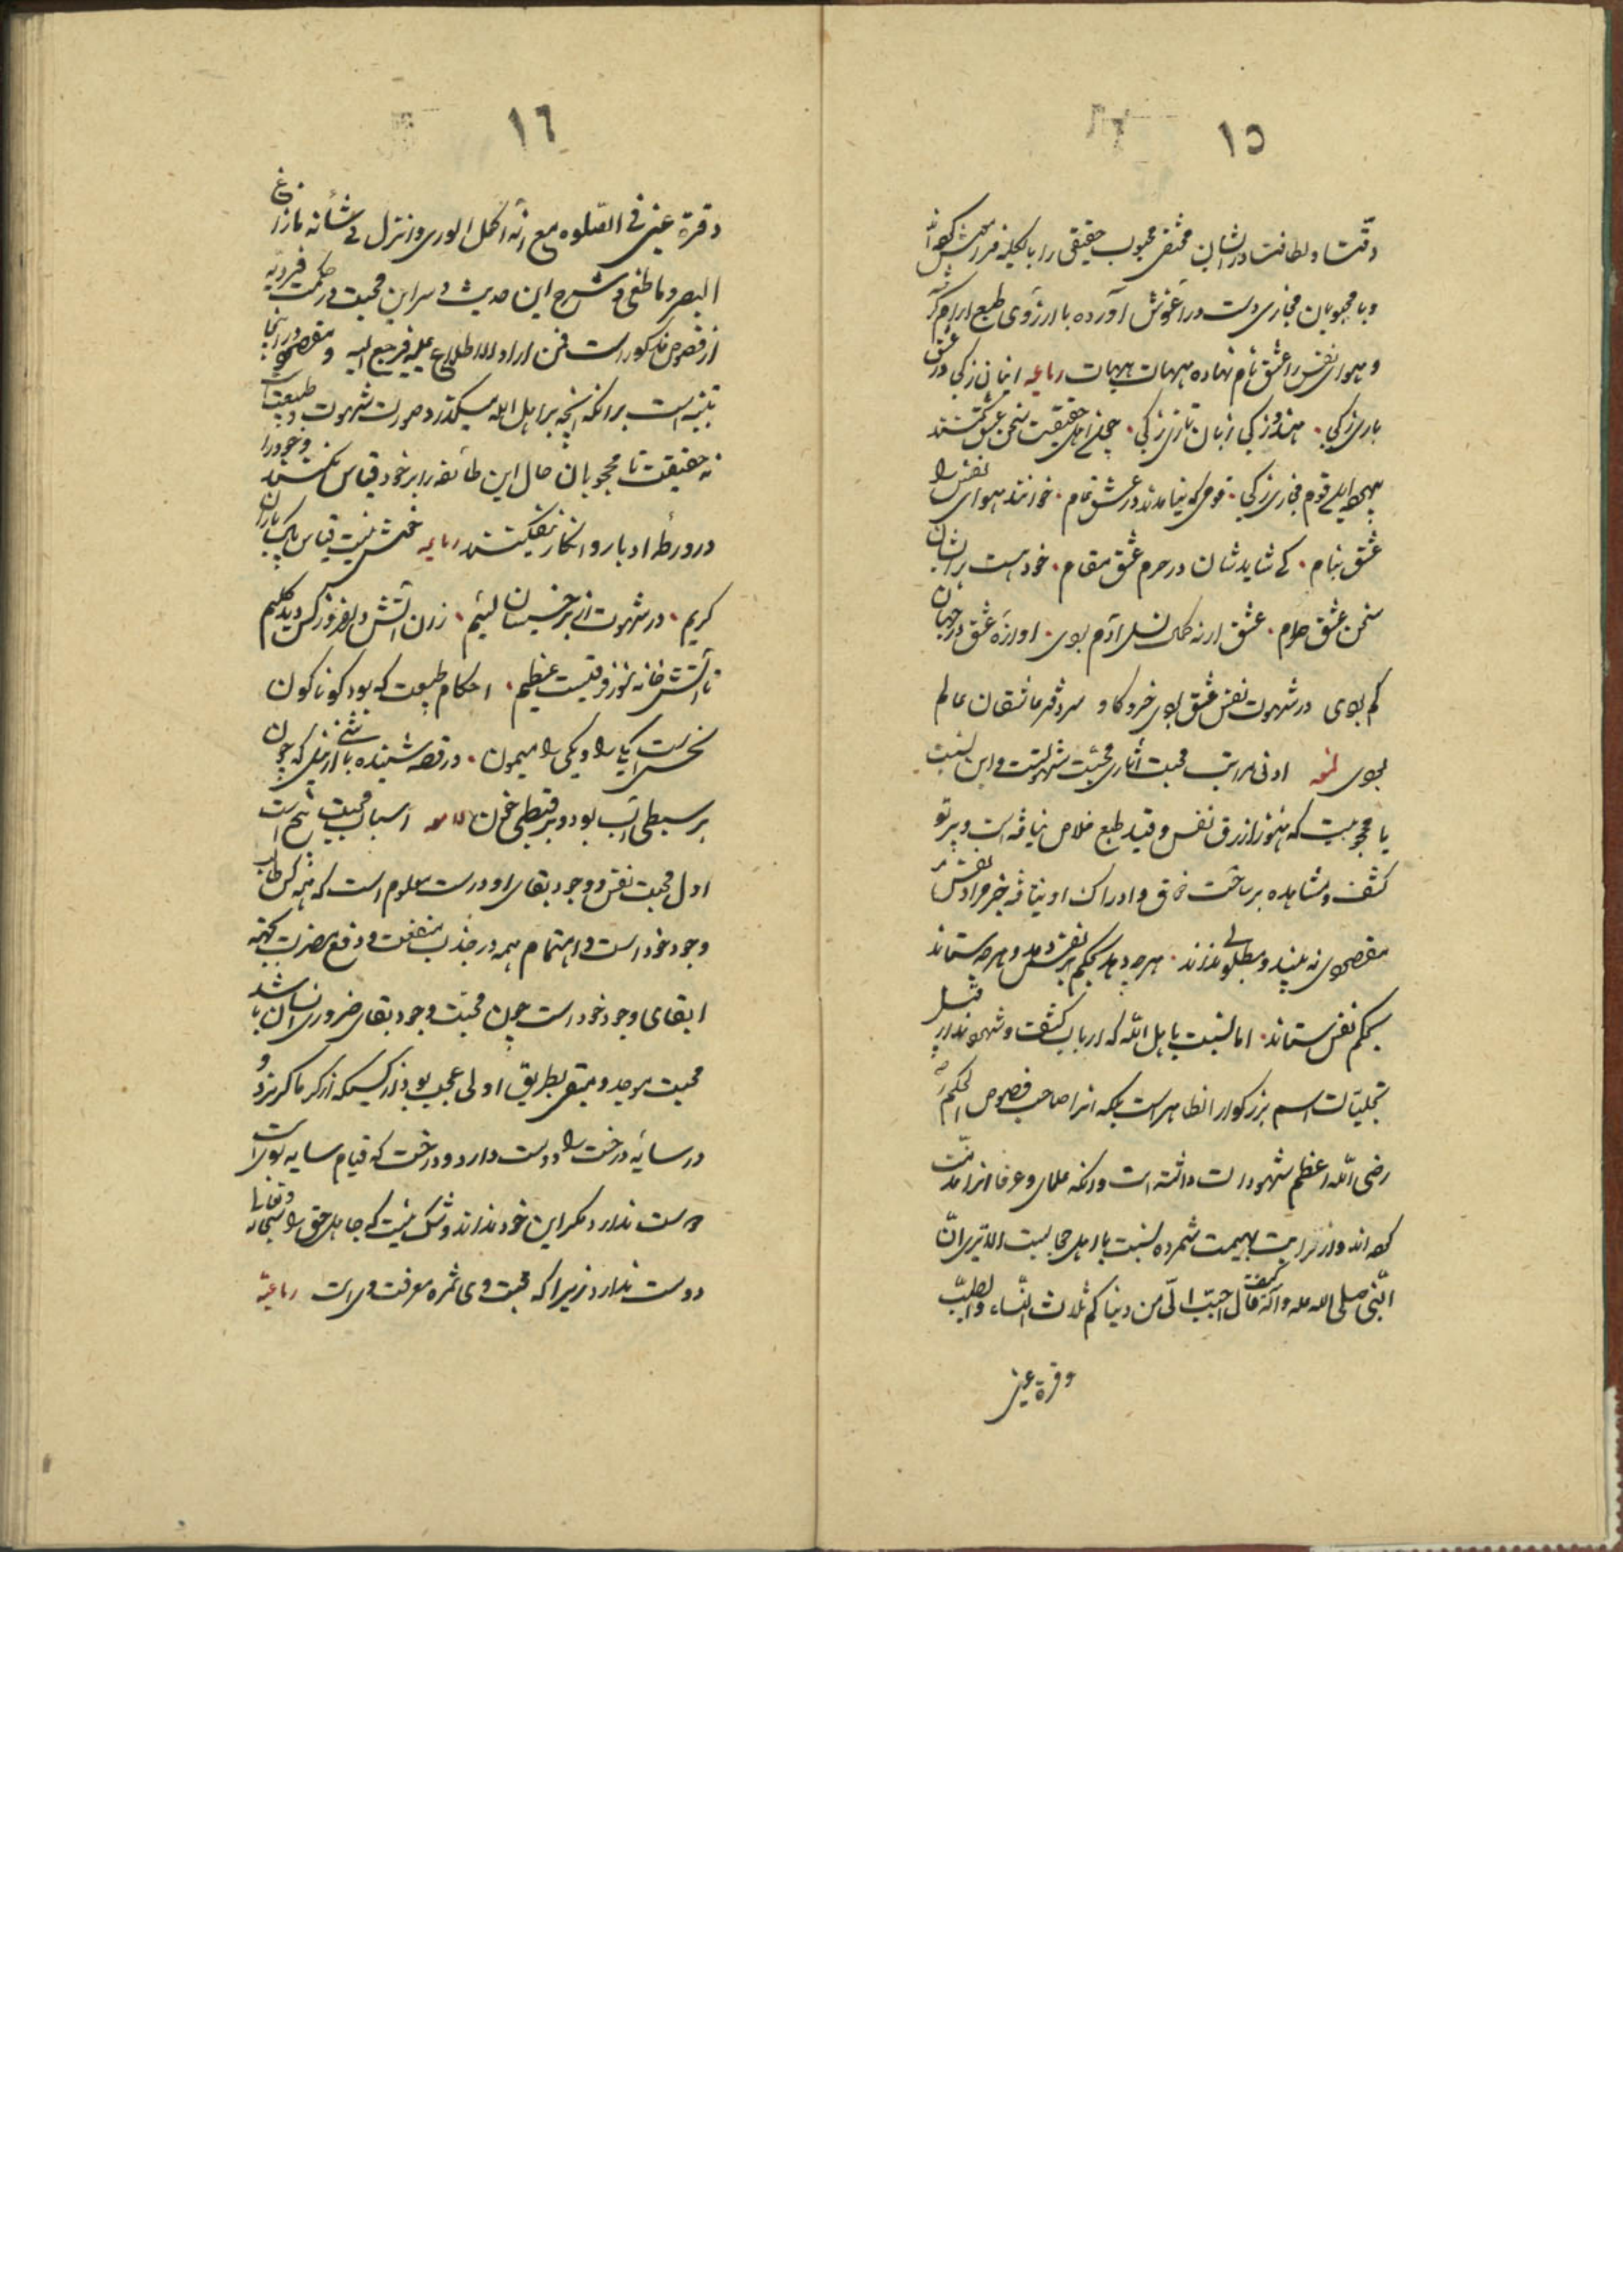 ١٥
دقت و لطافت در ایشان مختفی محبوب حقیقی را بالکلیه فراموش کرده‌اند
و با محبوبان مجازی دست در آغوش آورده با آرزوی طبع آرام گرفته
و هوای نفس را عشق نام نهاده هیهات هیهات رباعیه اینان ز کجا و عشق
بازی ز کجا هندو ز کجا زبان تازی ز کجا چون اهل حقیقت سخن عشق گفتند
بیهوده این قوم مجازی ز کجا قومی که نیامدند در عشق تمام خوانند هوای نفس را
عشق بنام کی شاید شان در حرم عشق مقام خود هست بر ایشان
سخن عشق حرام عشق ار نه کمال نسل آدم بودی آوازه عشق در جهان
کم بودی ور شهوت نفس عشق بودی خر و گاو سر دفتر عاشقان عالم
بودی ادنی مراتب محبت آثاری محبت شهوتست و این نسبت
با محجوبیست که هنوز از رق نفس و قید طبع خلاص نیافته است و پرتو
کشف و مشاهده بر ساحت ذوق و ادراک او نیتافته جز مراد نفس
مقصودی نه بیند و مطلوبی نداند هر چه دهد بحکم نفس دهد و هر چه ستاند
بحکم نفس ستاند اما نسبت با اهل الله که ارباب کشف و شهودند از قبیل
تجلیات اسم بزرگوار الظاهر است بلکه آنرا صاحب فصوص الحکم
رضی الله اعظم شهودات داشته است و آنکه علما و عرفا آنرا مذمت
کرده‌اند و از مراتب بهیمیت شمرده نسبت با اهل حجابست الا تری ان
النبی صلی الله علیه و آله کیف قال احبب الی من دنیاکم ثلاث النساء و الطیب
و قرة عینی
١٦
و قرة عینی فی الصلوه مع انه اکمل الوری و انزل فی شأنه ما زاغ
البصر و ما طغی و شرح این حدیث و سر این محبت در حکمت فردیه
از فصوص مذکور است فمن اراد الاطلاع علیه فلیرجع الیه و مقصود در اینجا
تنبیه است بر آنکه آنچه بر اهل الله میگذرد صورت شهوت و طبیعت است
نه حقیقت تا محجوبان حال این طائفه را بر خود قیاس نکنند و خود را
در ورطه ادبار و انکار نیفکنند رباعیه خمش نیست قیاس پاک بازان
کریم در شهوت از بر خسیسان لئیم زان آتش دلفروز کش دید کلیم
تا آتش خانه سوز فرقیست عظیم احکام طبیعت که بود گوناگون
نحس است یکی را و یکی را میمون در قصه شنیده باشی از نیل که چون
بر سبطی آب بود و بر قبطی خون اسباب محبت پنج است
اول محبت نفس و وجود بقای او و درست معلوم است که همه کس طالب
وجود خود است و اهتمام همه در جذب منفعت و دفع مضرت بجهة
ابقای وجود خود است چون محبت وجود بقای ضروری انسان باشد
محبت موجد و مبقی بطریق اولی عجب بود از کسیکه از گرما گریزد و
در سایه درخت را دوست دارد و درخت که قیام سایه بوی است
دوست ندارد مگر این خود نداند و شک نیست که جاهل حق را سبحانه و تعالی
دوست ندارد زیرا که محبت وی ثمره معرفت وی است رباعیه